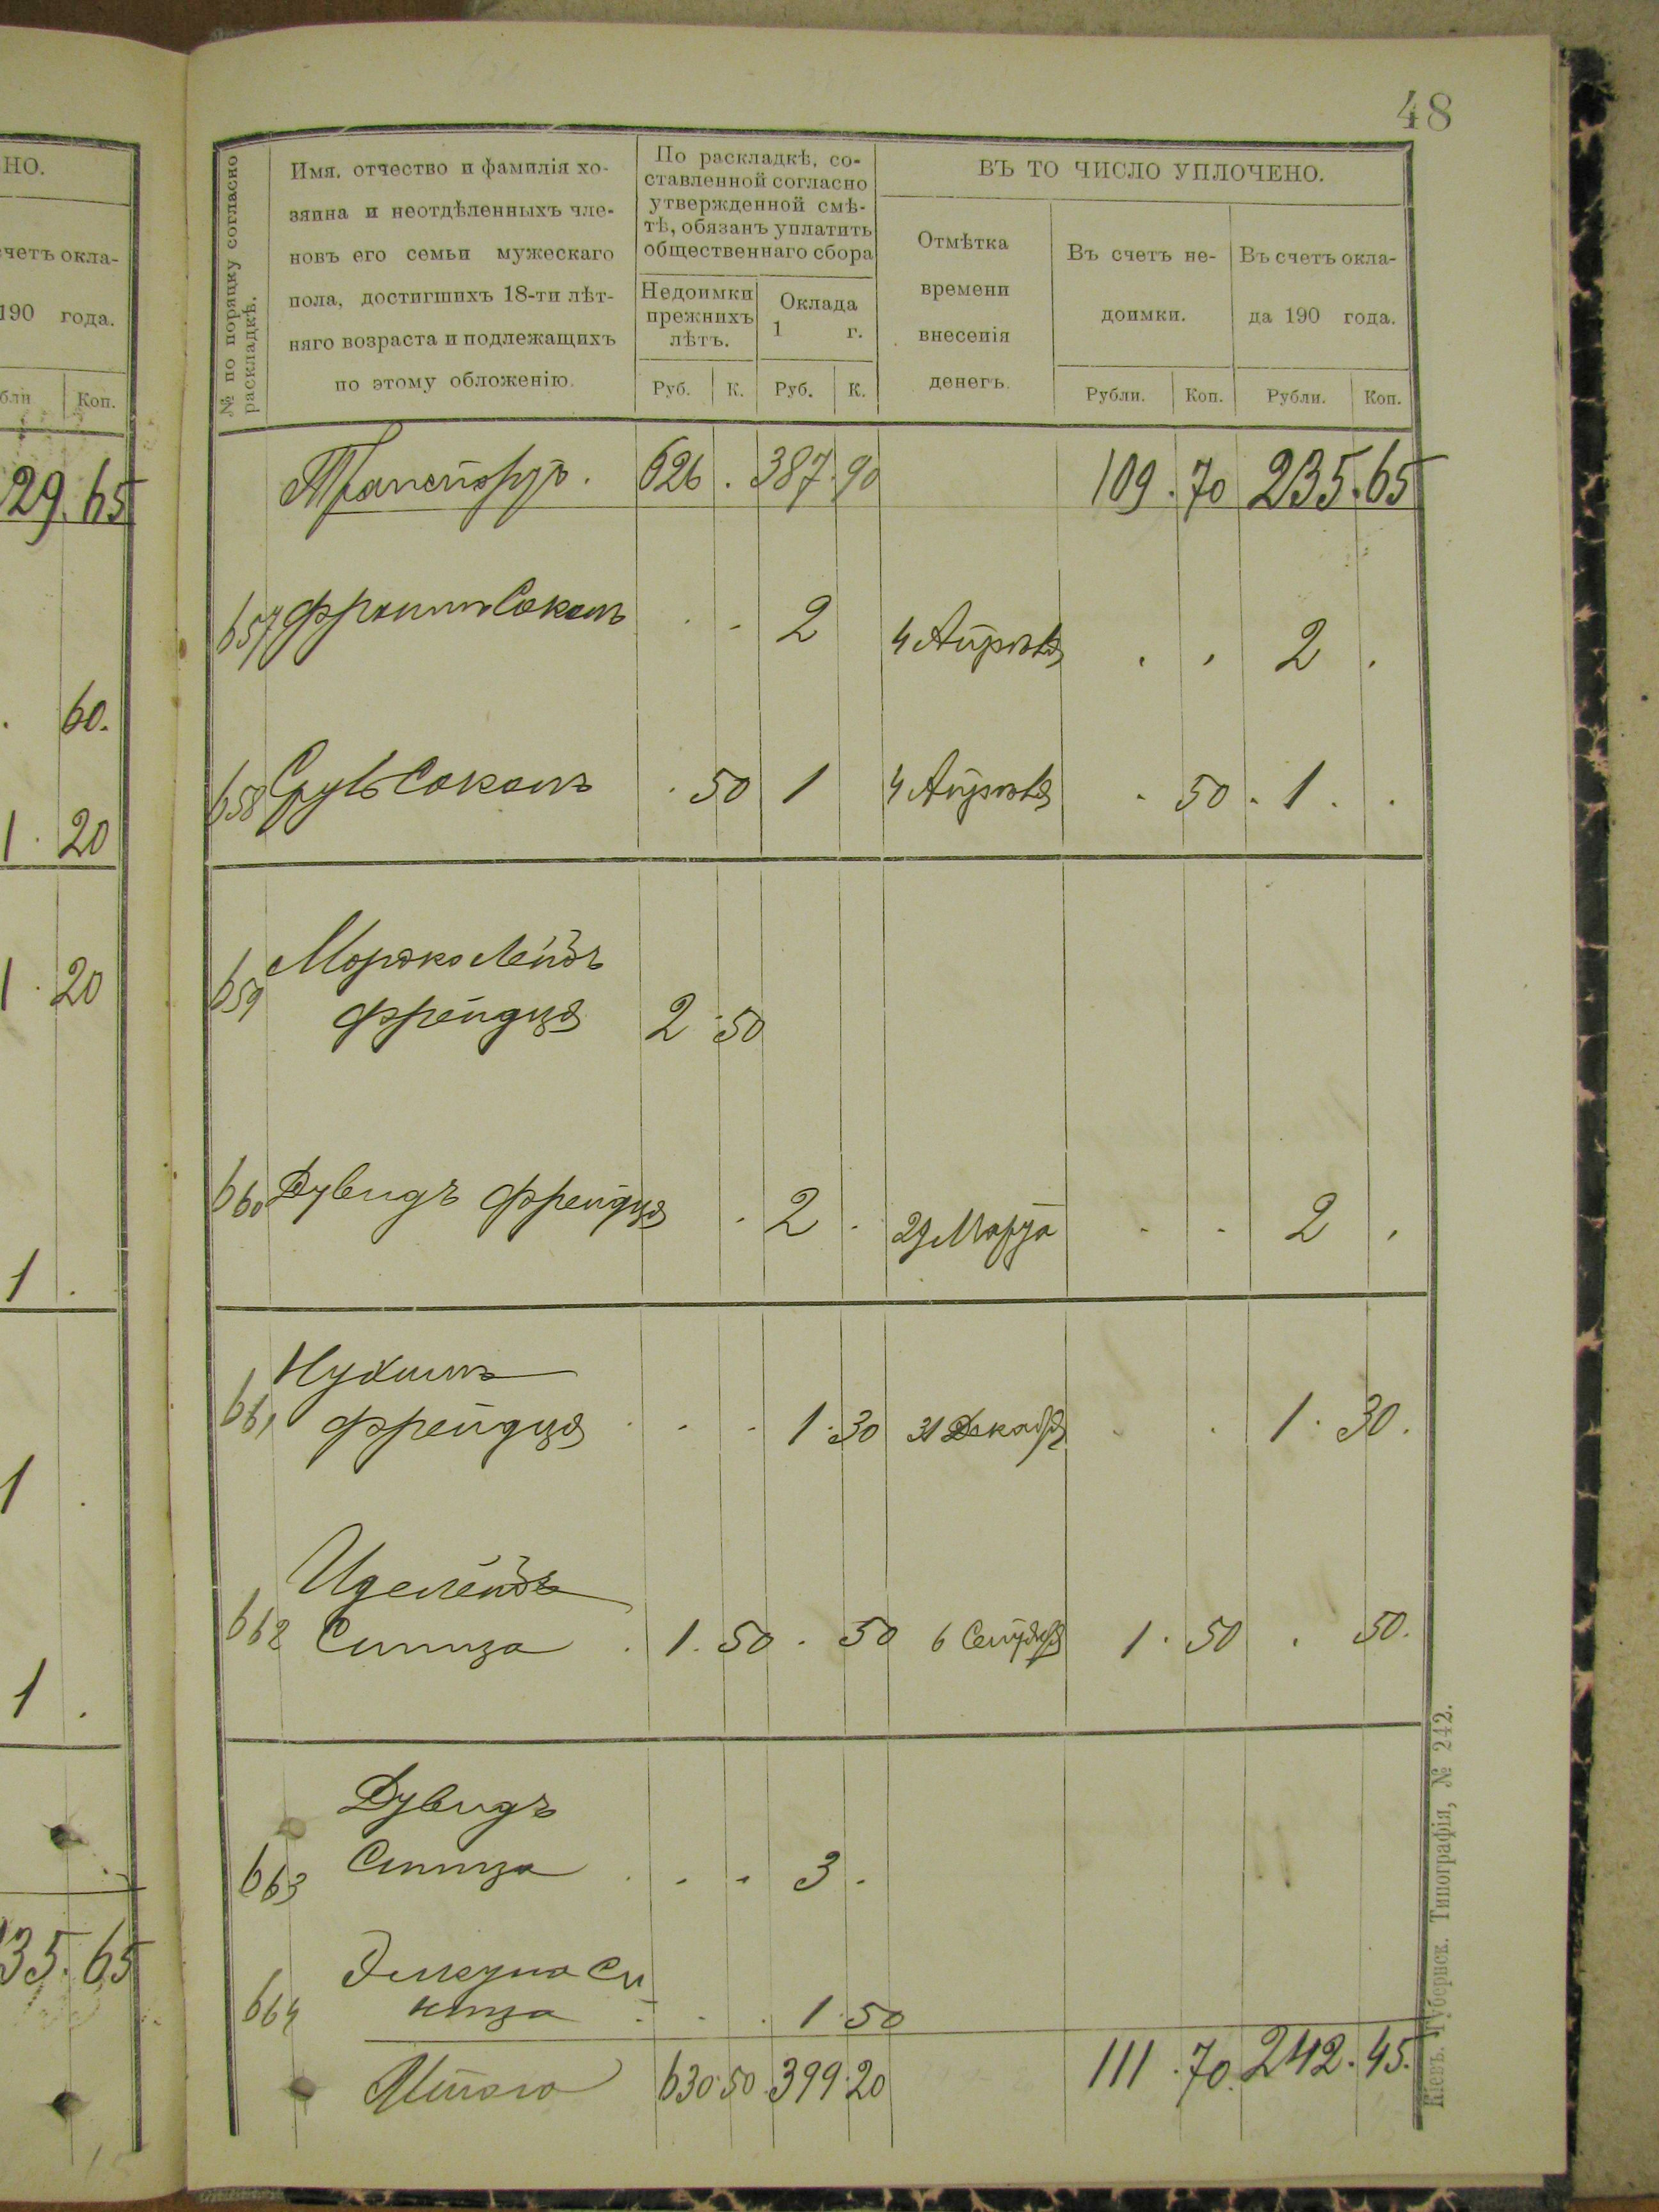 48
НО.
счетъ окла-
190 года.
бли Коп.
29.65
. 60.
1. 20
1. 20
1 .
1 .
1 .
35. 65
№ по порядку согласно
раскладкѣ.
Имя, отчество и фамилія хо-
зяина и неотдѣленныхъ чле-
новъ его семьи мужескаго
пола, достигшихъ 18-ти лѣт-
няго возраста и подлежащихъ
по этому обложенію.
По раскладкѣ, со-
ставленной согласно
утвержденной смѣ-
тѣ, обязанъ уплатить
общественнаго сбора
Недоимки
прежнихъ
лѣтъ.
Оклада
1 г.
Руб. К. Руб. К.
ВЪ ТО ЧИСЛО УПЛОЧЕНО.
Отмѣтка
времени
внесенія
денегъ.
Въ счетъ не-
доимки.
Въ счетъ окла-
да 190 года.
Рубли. Коп. Рубли. Коп.
Транспортъ. 626 . 387.90 109.70 235.65
657 Фроимъ Соколъ . . 2 4 Апрѣля . . 2 .
658 Сруль Соколъ . 50 1 4 Апрѣля . 50 . 1 . .
Мордко Лейбъ
659 Фрейдця 2.50
660 Дувидъ Фрейдця . 2 . 29 Марта . . 2 .
Нухимъ
661 Фрейдця . . . 1.30 31 Декабря . . 1. 30.
Иделейбъ
662 Синица . 1. 50 . 50 6 Сентября 1. 50 . 50.
Дувидъ
663 Синица . . . 3 .
664 Элькуна Си
ница . . . 1.50
Итого 630.50 399.20 111.70. 242.45.
Кіевъ. Губернск. Типографія, № 242.